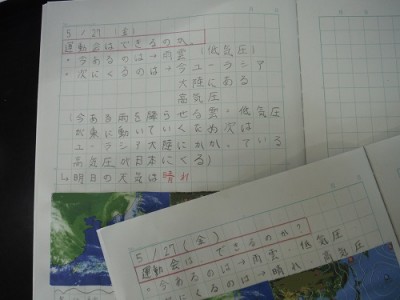 5/27(金)
運動会はできるのか。
・今あるのは→雨雲(低気圧)
・次にくるのは→今ユーラシア
大陸にある
高気圧
(今ある雨を降らせる雲・低気圧
が東に動いていくため次は
ユーラシア大陸にかかっている
高気圧が日本にくる)
↳明日の天気は晴れ
5/27(金)
運動会は できるのか?
・今あるのは→雨雲・低気圧
・次にくるのは→晴れ・高気圧